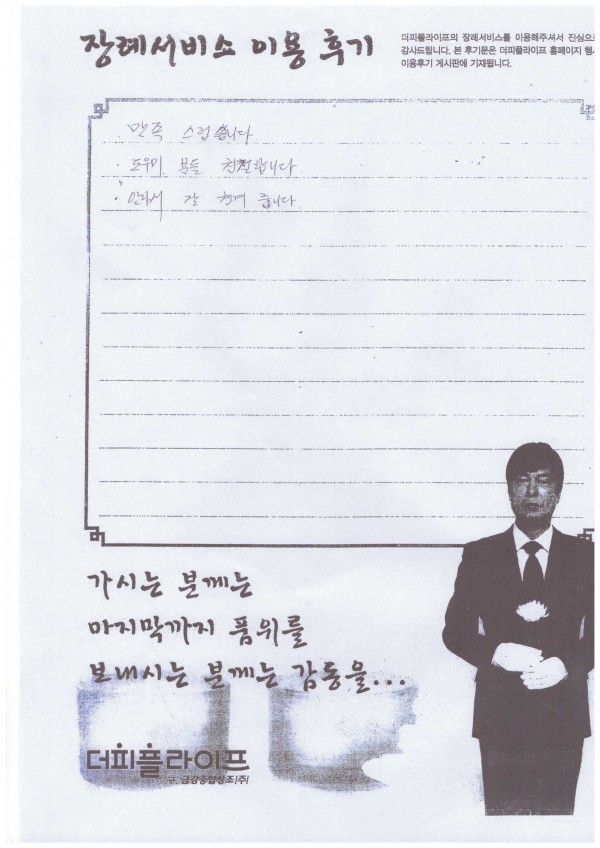 장례서비스 이용 후기
더피플라이프의 장례서비스를 이용해주셔서 진심으
감사드립니다. 본 후기문은 더피플라이프 홈페이지 행
이용후기 게시판에 기재됩니다.
· 만족 스럽습니다
· 도우미 분들 친절합니다
· 알아서 잘 챙겨 줍니다.
가시는 분께는
마지막까지 품위를
보내시는 분께는 감동을...
더피플라이프
구. 금강종합상조(주)